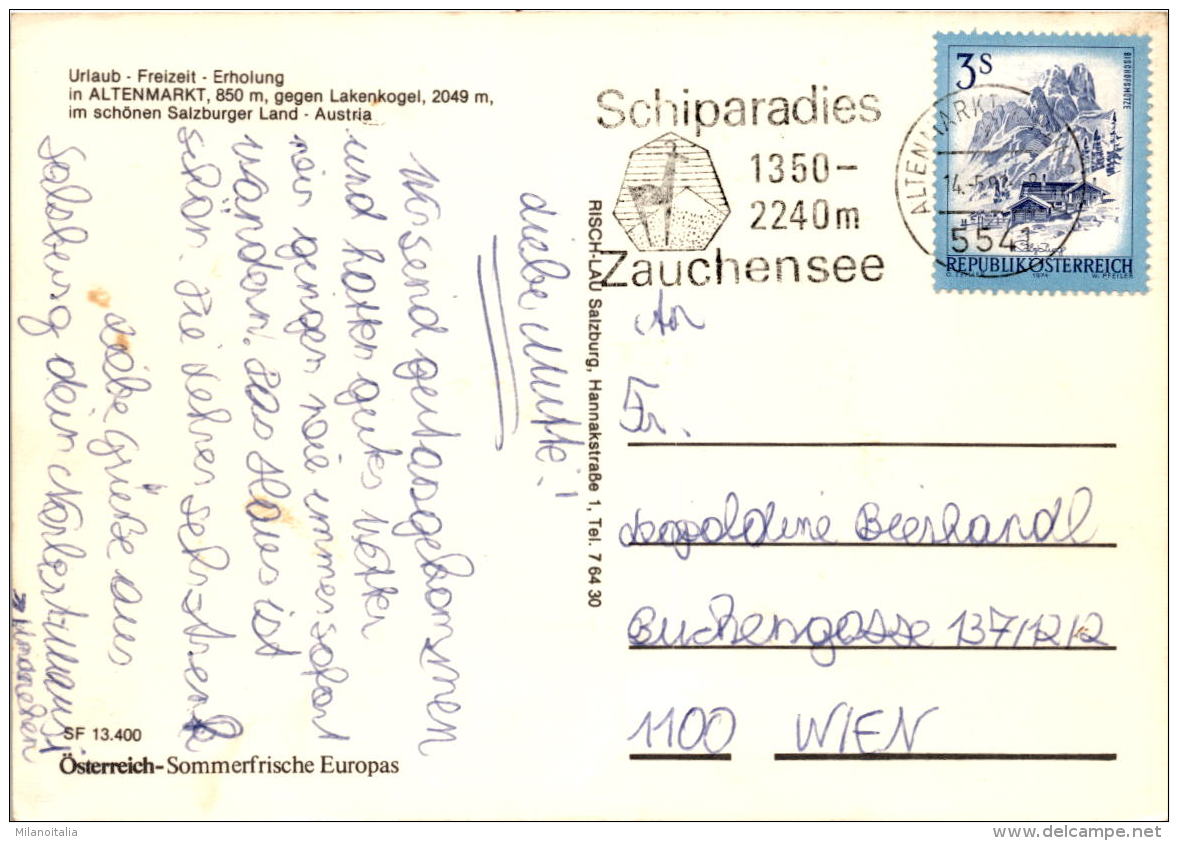 Urlaub - Freizeit - Erholung
in ALTENMARKT, 850 m, gegen Lakenkogel, 2049 m,
im schönen Salzburger Land - Austria
Liebe Mutti!
Wir sind gut angekommen
und hatten gutes Wetter
wir gingen wie immer sofort
wandern. Das Haus ist
schön. Die Lehrer sehr streng
Liebe Grüße aus
Salzburg dein Norbert
SF 13.400
Österreich-Sommerfrische Europas
RISCH-LAU Salzburg, Hannakstraße 1, Tel. 7 64 30
Schiparadies
1350-
2240m
Zauchensee
ALTENMARKT
5541
3S
BISCHOFSMÜTZE
REPUBLIK ÖSTERREICH
1974
W. PFEILER
An
Fr.
Leopoldine Bierhandl
Buchengasse 137/12/2
1100 WIEN
Milanoitalia
www.delcampe.net